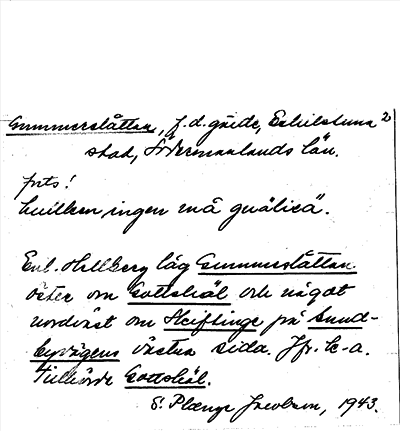 Gummerslåttan, f.d. gärde, Eskilstuna 2
stad, Södermanlands län.
forts!
huilken ingen må quälia".
Enl. Hellberg låg Gummerslåttan
öster om Gottshäl och något
nordväst om Skiftinge på Sund-
byvägens östra sida. Jfr. k-a.
Tillhörde Gottshäl.
S. Plænge Jacobson, 1943.